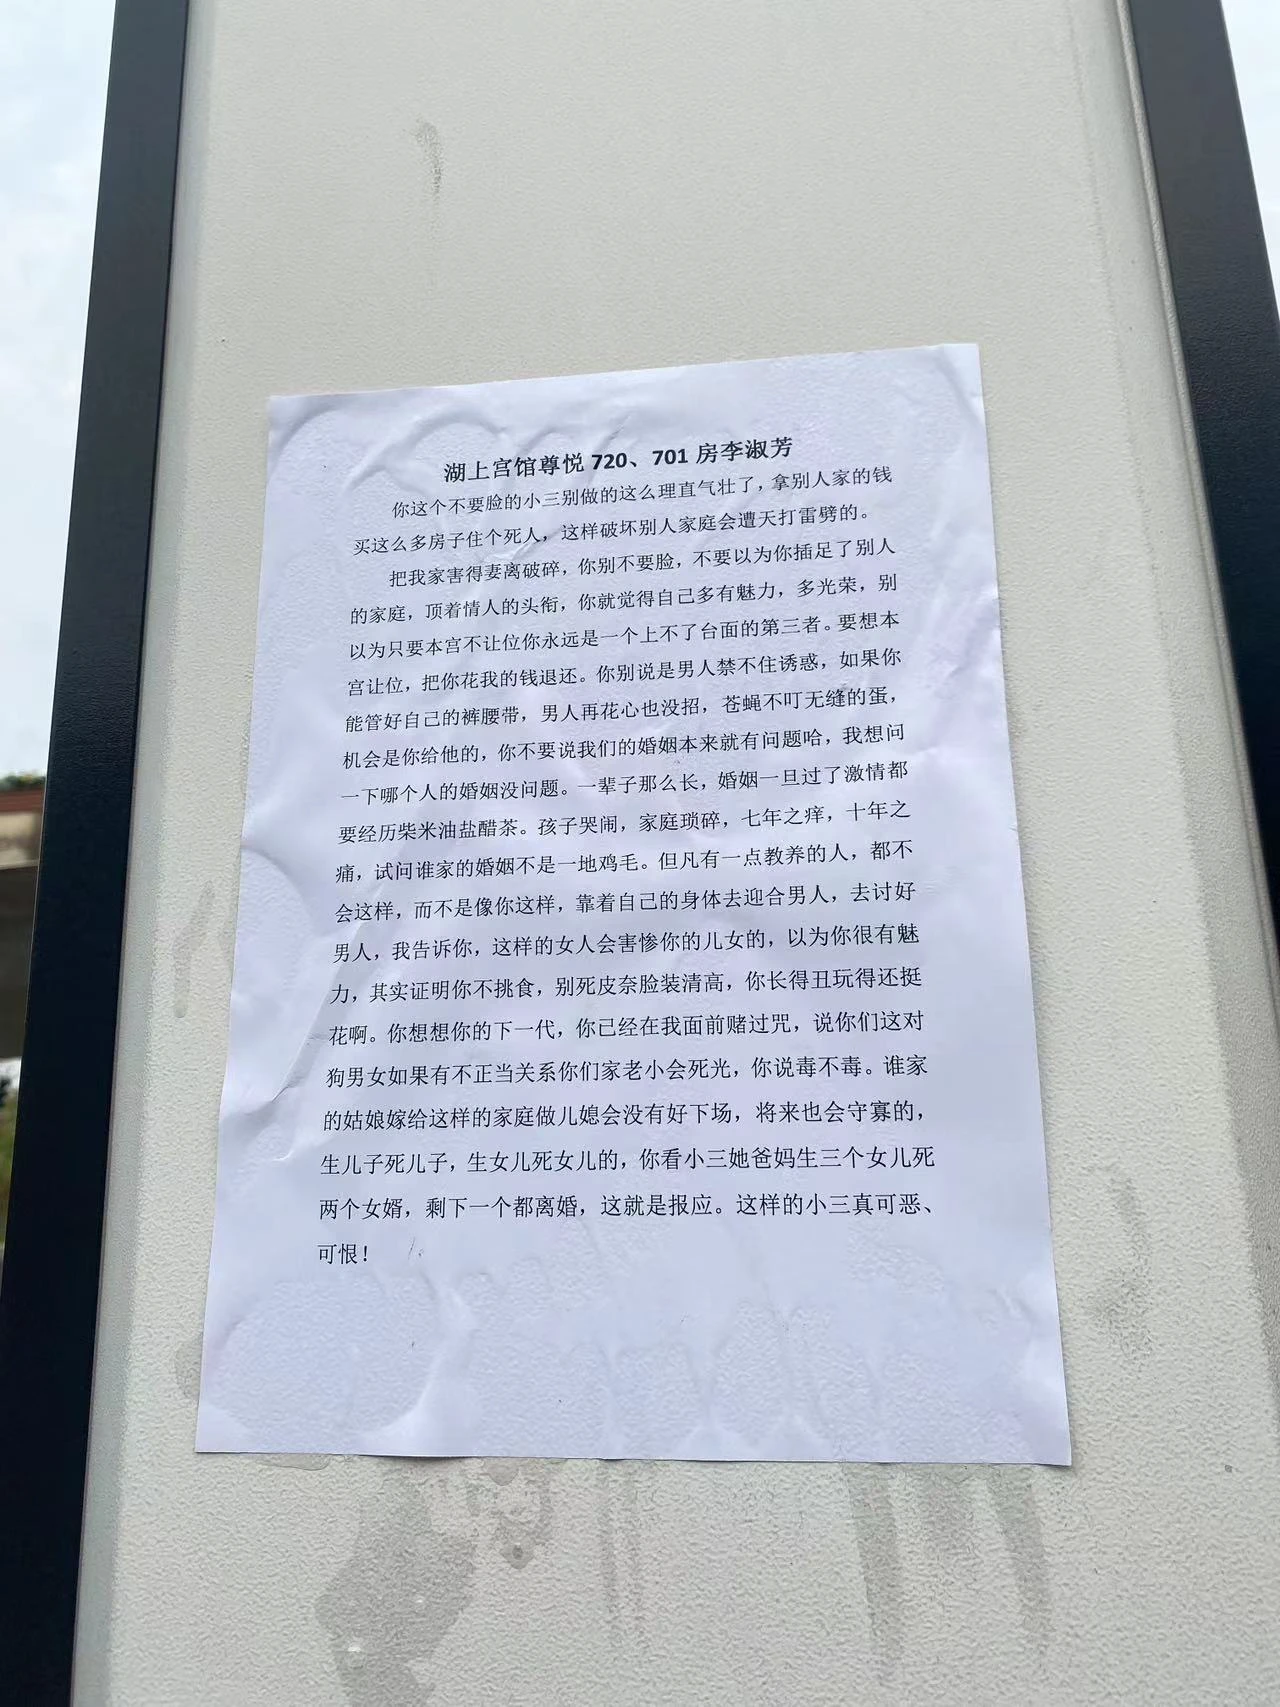 湖上宫馆尊悦 720、701 房李淑芳
你这个不要脸的小三别做的这么理直气壮了，拿别人家的钱
买这么多房子住个死人，这样破坏别人家庭会遭天打雷劈的。
把我家害得妻离破碎，你别不要脸，不要以为你插足了别人
的家庭，顶着情人的头衔，你就觉得自己多有魅力，多光荣，别
以为只要本宫不让位你永远是一个上不了台面的第三者。要想本
宫让位，把你花我的钱退还。你别说是男人禁不住诱惑，如果你
能管好自己的裤腰带，男人再花心也没招，苍蝇不叮无缝的蛋，
机会是你给他的，你不要说我们的婚姻本来就有问题哈，我想问
一下哪个人的婚姻没问题。一辈子那么长，婚姻一旦过了激情都
要经历柴米油盐醋茶。孩子哭闹，家庭琐碎，七年之痒，十年之
痛，试问谁家的婚姻不是一地鸡毛。但凡有一点教养的人，都不
会这样，而不是像你这样，靠着自己的身体去迎合男人，去讨好
男人，我告诉你，这样的女人会害惨你的儿女的，以为你很有魅
力，其实证明你不挑食，别死皮奈脸装清高，你长得丑玩得还挺
花啊。你想想你的下一代，你已经在我面前赌过咒，说你们这对
狗男女如果有不正当关系你们家老小会死光，你说毒不毒。谁家
的姑娘嫁给这样的家庭做儿媳会没有好下场，将来也会守寡的，
生儿子死儿子，生女儿死女儿的，你看小三她爸妈生三个女儿死
两个女婿，剩下一个都离婚，这就是报应。这样的小三真可恶、
可恨！